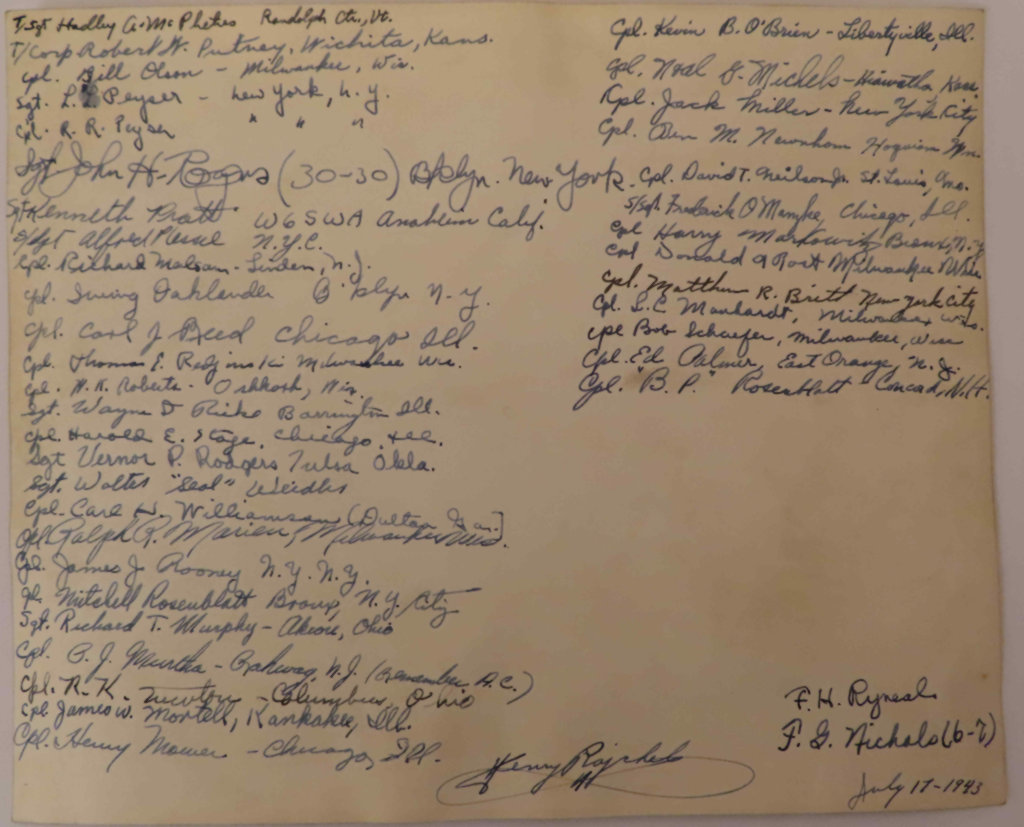 T/Sgt Hadley G. McPhetres Randolph Ctr., Vt.
T/Corp Robert W. Putney, Wichita, Kans.
Cpl. Bill Olson - Milwaukee, Wis.
Sgt. L. L. Peyser - New York, N.Y.
Cpl. R. R. Peyser " " "
Sgt John H. Rogers (30-30) Bklyn. New York.
S/Sgt Kenneth Pratt W6SWA Anaheim Calif.
S/Sgt Alfred N.Y.C.
Cpl. Richard - Linden, N.J.
Cpl. Irving Oaklander B'klyn N.Y.
Cpl. Carl J Chicago Ill.
Cpl. Thomas E. Milwaukee Wis.
Cpl. W. R. Roberts - Oshkosh, Wis.
Sgt. Wayne D Rieke Barrington Ill.
Cpl. Harold E. Stage, Chicago, Ill.
Sgt Vernor P. Rodgers Tulsa Okla.
Sgt. Walter "Seal"
Cpl. Carl W. Williamson (Dalton
Cpl Ralph R. Marien, Milwaukee Wis.
Cpl. James J. Rooney N.Y. N.Y.
Cpl. Mitchell Rosenblatt Bronx, N.Y. City
Sgt. Richard T. Murphy - Akron, Ohio
Cpl. B. J. Murtha - Rahway, N.J. (Remember A.C.)
Cpl. R. K. Newton - Columbus, Ohio
Cpl James W. Mortell, Kankakee, Ill.
Cpl. Henry - Chicago, Ill.
Henry
Cpl. Kevin B. O'Brien - Libertyville, Ill.
Cpl. Neal J. Michels - Hiawatha, Kans.
Cpl. Jack Miller - New York City
Cpl. M. Newnham Hoquiam Wn.
Cpl. David T. Neilson Jr. St. Louis, Mo.
S/Sgt. Frederick Chicago, Ill.
Cpl Harry Markowitz Bronx, N.Y.
Cpl Donald A Rost Milwaukee Wisc
Cpl. Matthew R. Britt New York City
Cpl. L. E. Manhardt, Milwaukee Wis.
Cpl Bob Schaefer, Milwaukee, Wisc
Cpl. Ed Palmer, East Orange, N.J.
Cpl. "B. P." Rosenblatt Concord, N.H.
F. H.
F. G. Nichols (6-7)
July 17-1943